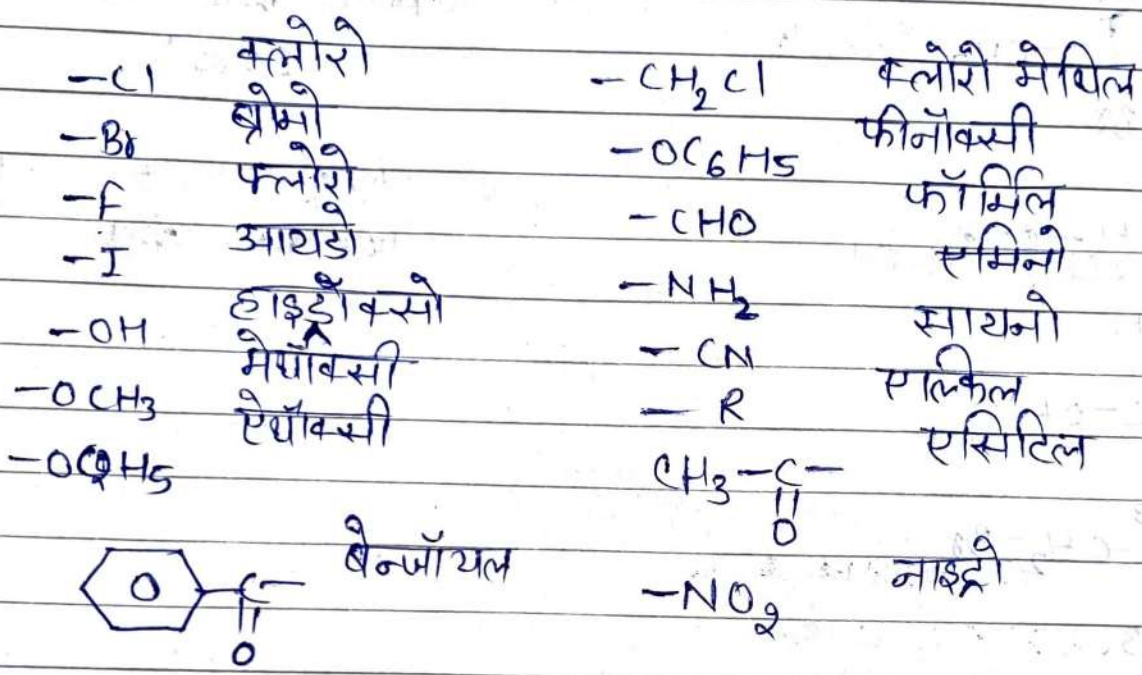 -Cl क्लोरो
-Br ब्रोमो
-F फ्लोरो
-I आयडो
-OH हाइड्रॉक्सो
-OCH3 मेथॉक्सी
-OC2H5 ऐथॉक्सी
C
O बेन्जॉयल
-CH2Cl क्लोरो मेथिल
-OC6H5 फीनॉक्सी
-CHO फॉर्मिल
-NH2 एमिनो
-CN सायनो
-R एल्किल
CH3-C- एसिटिल
O
-NO2 नाइट्रो